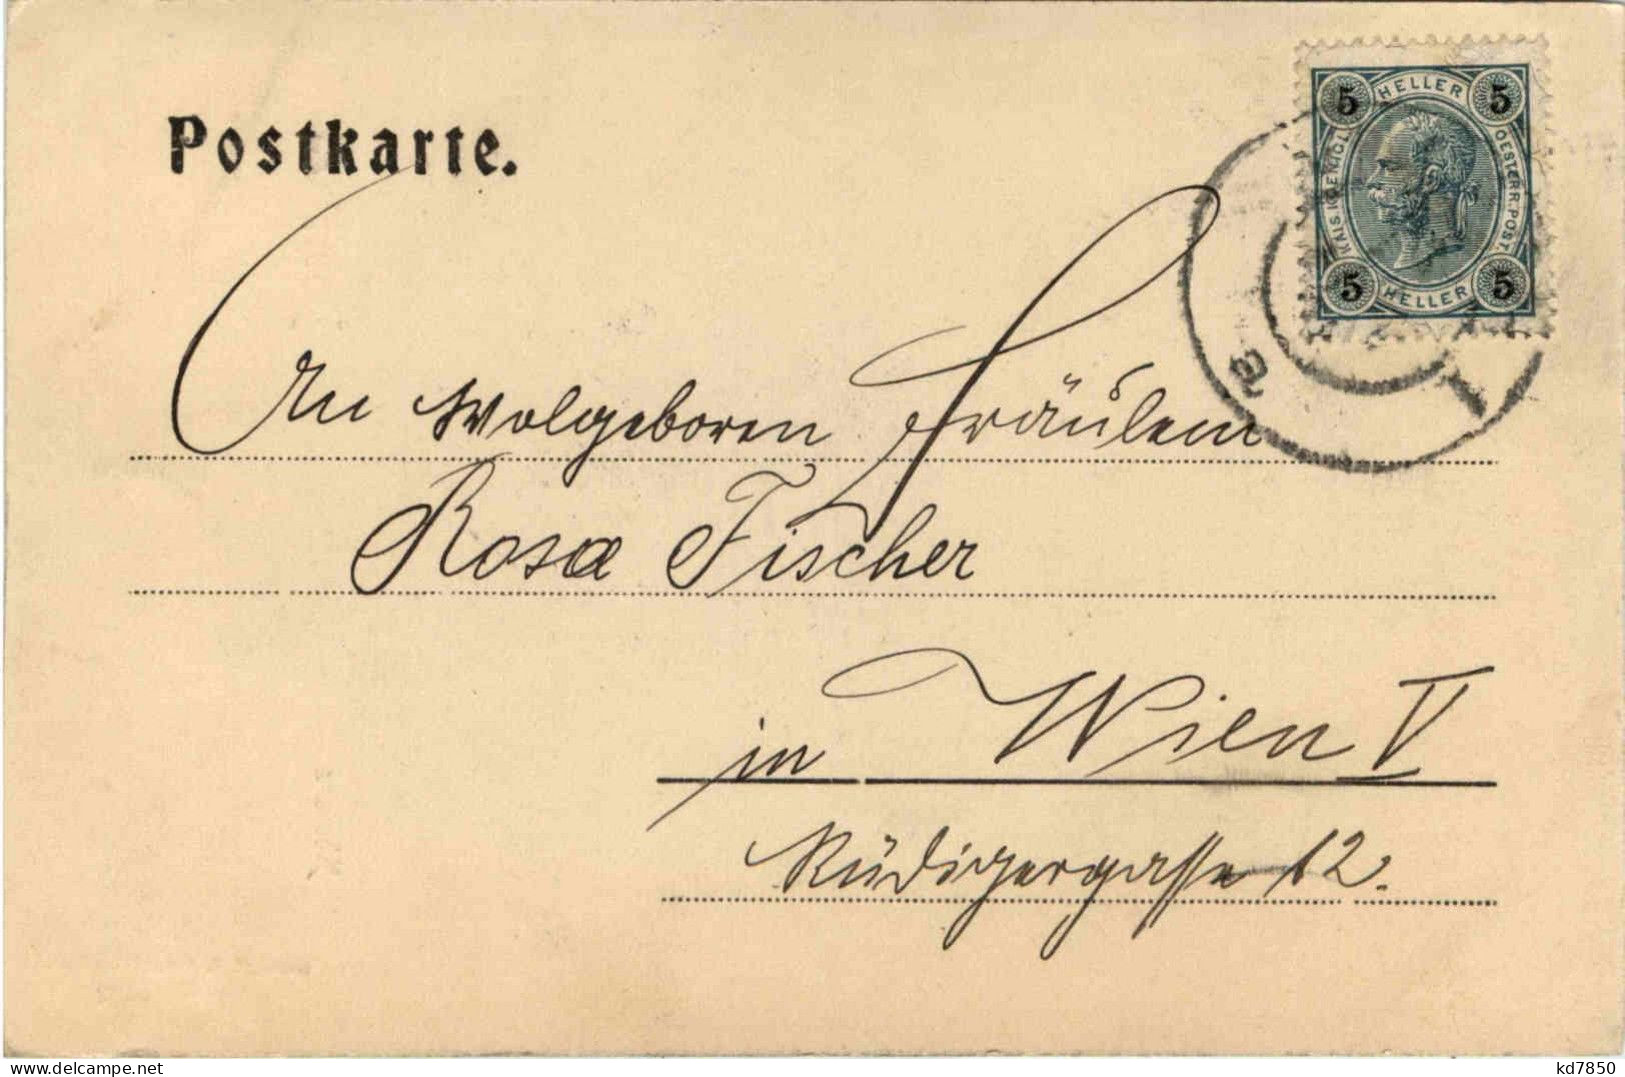 Postkarte.
5 HELLER 5
KAIS. KOENIGL. OESTERR. POST.
5 HELLER 5
a
An Wolgeboren Fräulein
Rosa Fischer
in Wien V
Rüdigergasse 12.
delcampe.net
kd7850